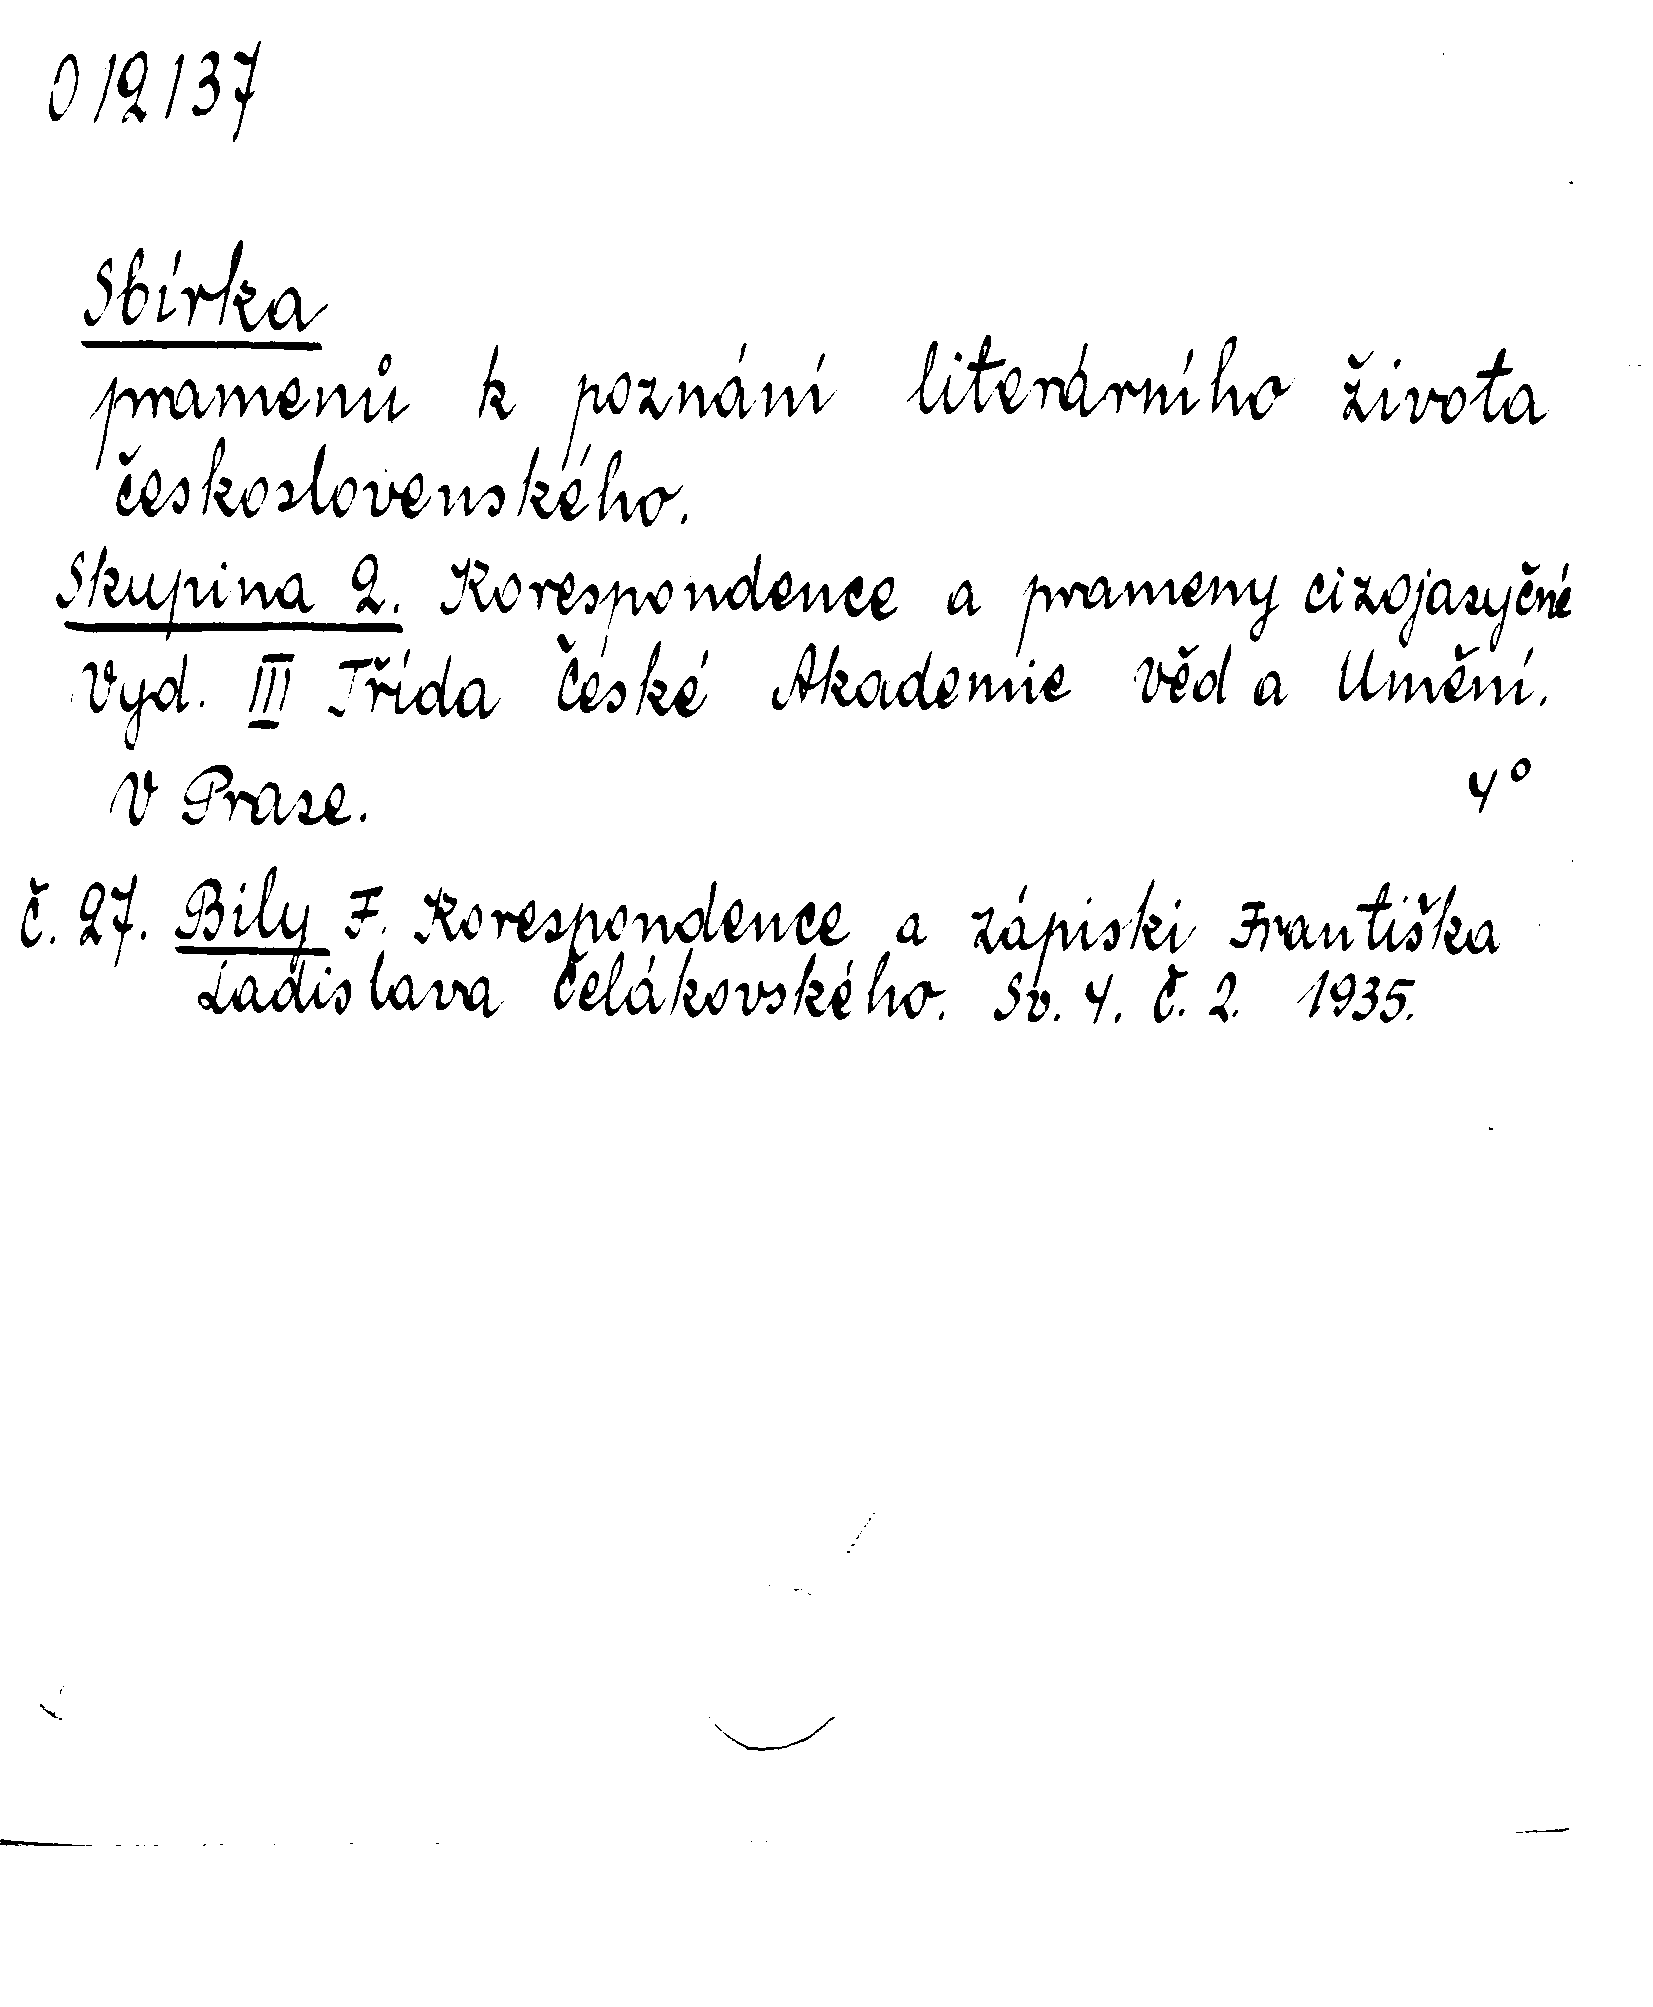 012137
Sbírka
pramenů k poznání literárního života
československého.
Skupina 2. Korespondence a prameny cizojazyčné
Vyd. III Třída České Akademie Věd a Umění.
V Praze. 4°
Č. 27. Bílý F. Korespondence a zápiski Františka
Ladislava Čelákovského. Sv. 4. Č. 2. 1935.